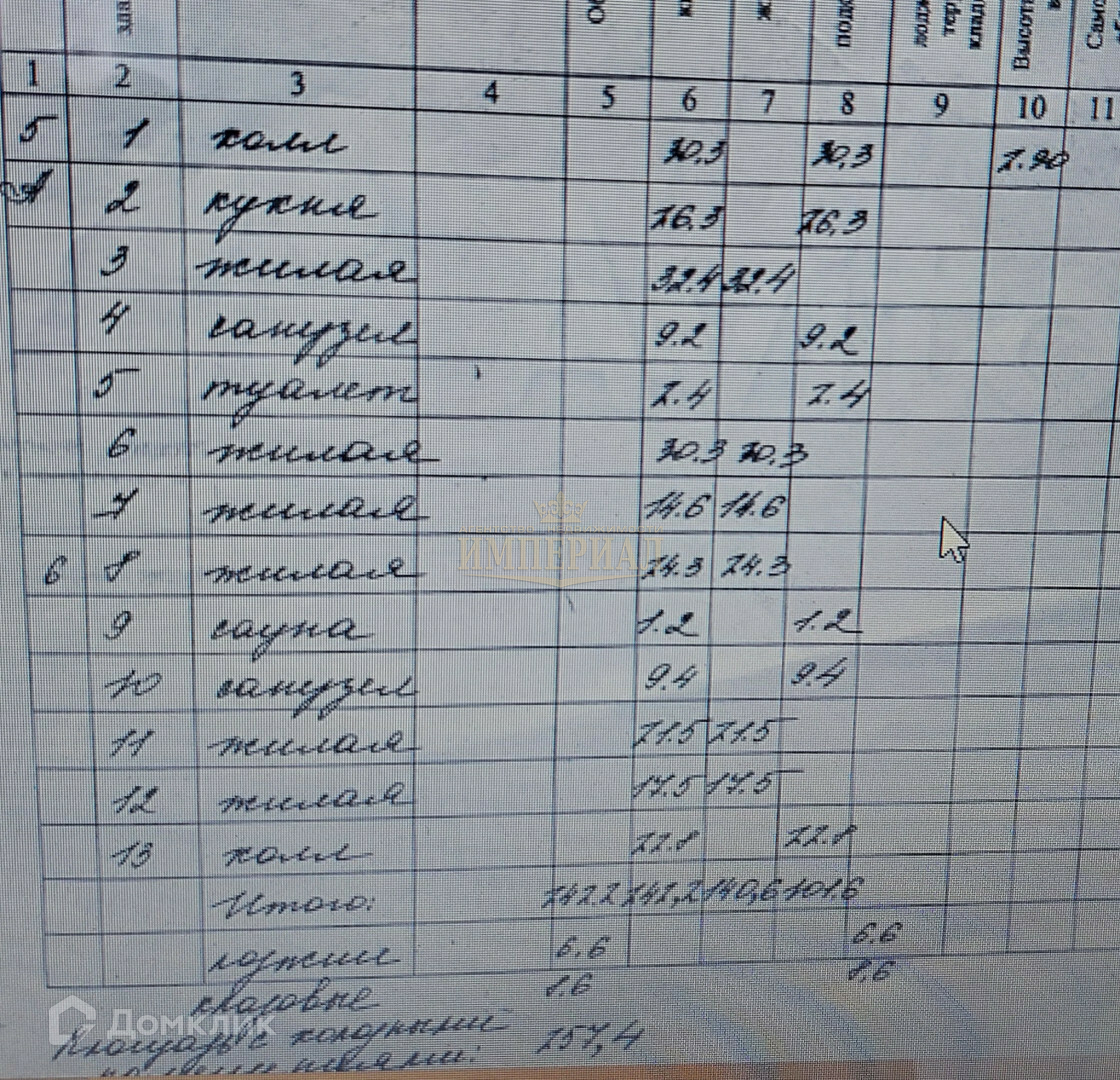 1 2 3 4 5 6 7 8 9 10 11
5 1 холл 30,3 30,3 2.90
2 кухня 26.3 26.3
3 жилая 32.4 32.4
4 санузел 9.2 9.2
5 туалет 2.4 2.4
6 жилая 30.3 30.3
7 жилая 14.6 14.6
6 8 жилая 24.3 24.3
9 сауна 1.2 1.2
10 санузел 9.4 9.4
11 жилая 21.5 21.5
12 жилая 17.5 17.5
13 холл 22.8 22.8
Итого: 242.2 242,2 140,6 101.6
лоджии 6.6 6.6
кладовые 8.6 8.6
Площадь с холодными 257,4
ИМПЕРИАЛ
Домклик